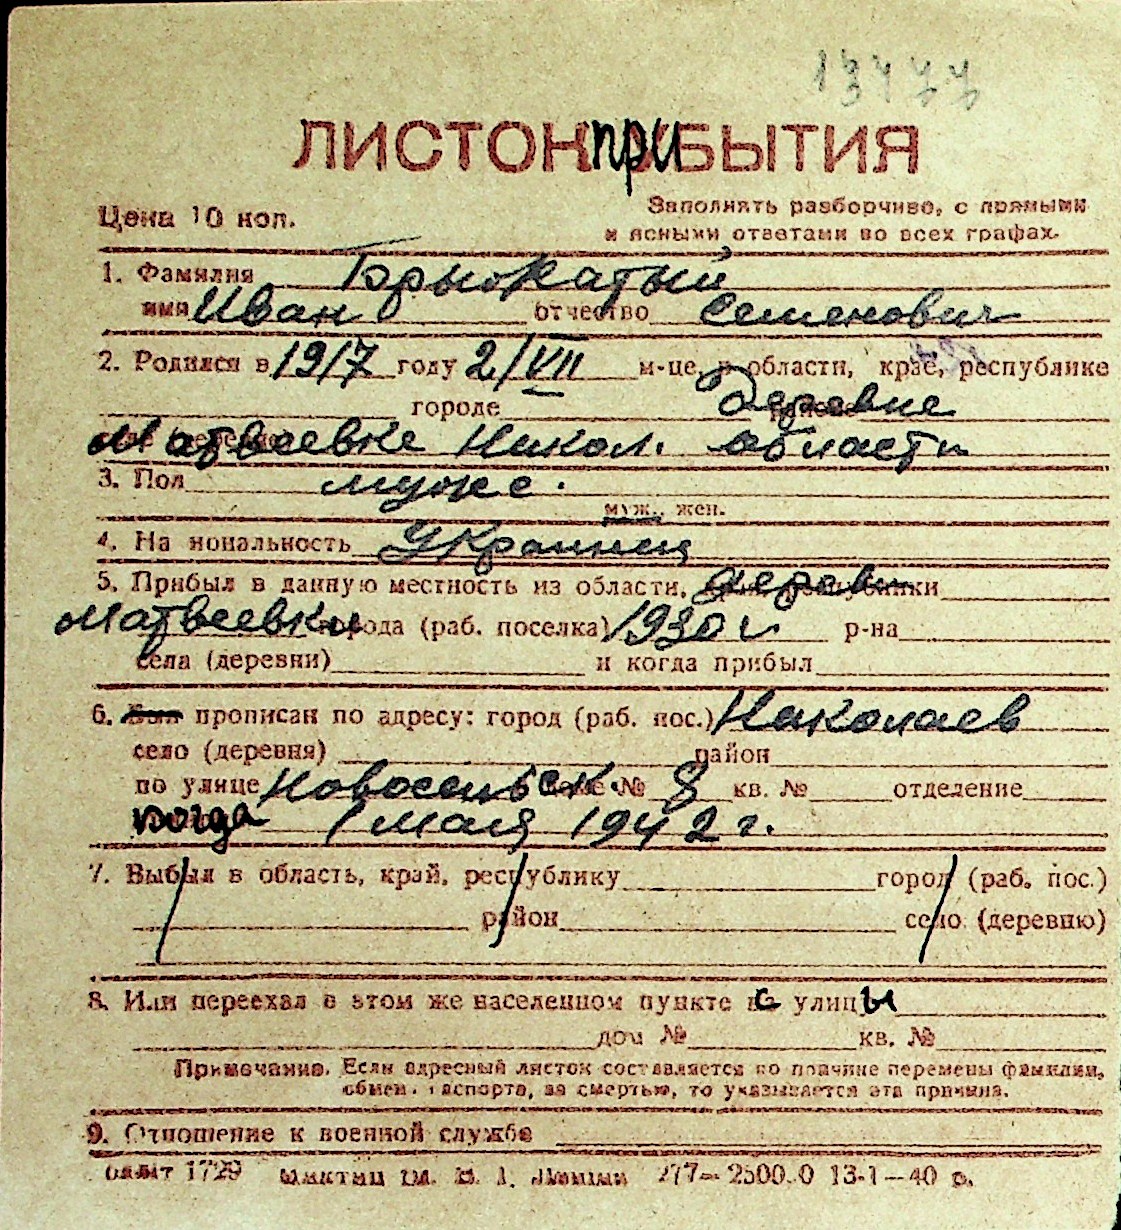 13477
ЛИСТОК приБЫТИЯ
Цена 10 коп.
Заполнять разборчиво, с прямыми
и ясными ответами во всех графах.
1. Фамилия Брюхатый
имя Иван отчество Семенович
2. Родился в 1917 году 2/VII м-це, в области, крае, республике
городе деревне
Матвеевке Никол. области
3. Пол мужс.
муж., жен.
4. Национальность Украинец
5. Прибыл в данную местность из области, деревни
Матвеевки города (раб. поселка) 1930 г. р-на
села (деревни) и когда прибыл
6. Был прописан по адресу: город (раб. пос.) Николаев
село (деревня) район
по улице Новосельск. № 8 кв. № отделение
когда 1 мая 1942 г.
7. Выбыл в область, край, республику город (раб. пос.)
район село (деревню)
8. Или переехал в этом же населенном пункте с улицы
дом № кв. №
Примечание. Если адресный листок составляется по причине перемены фамилии,
обмен. паспорта, за смертью, то указывается эта причина.
9. Отношение к военной службе
1729 ім. В. І. Леніна 277—2500.0 13-1—40 р.